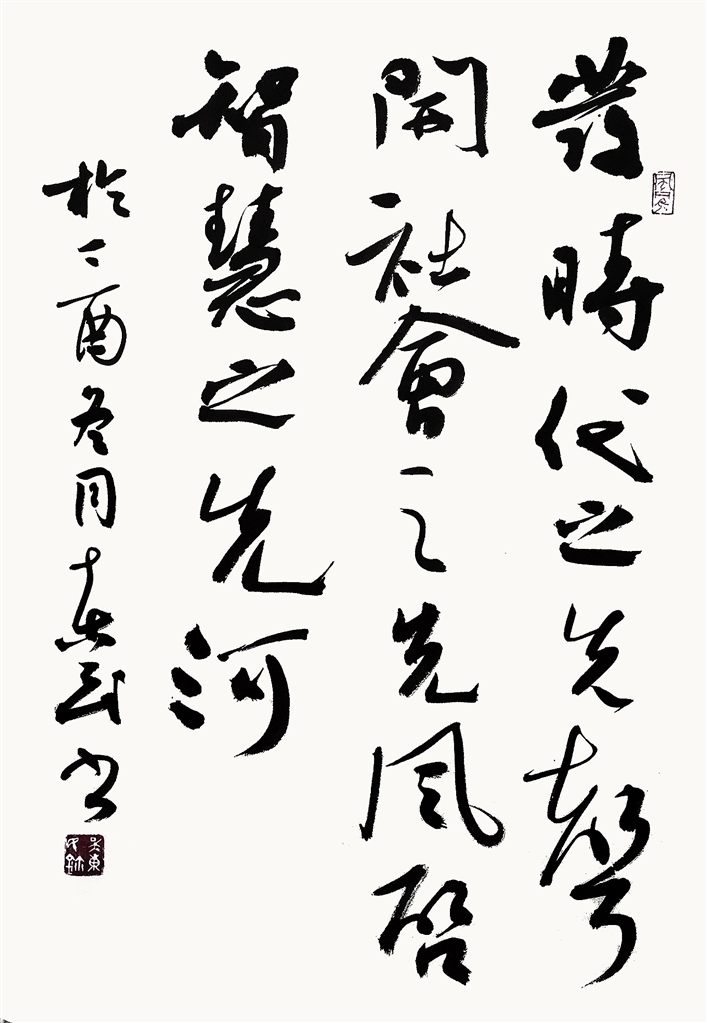 發時代之先聲
開社會之先風啓
智慧之先河
於丁酉冬月東民書